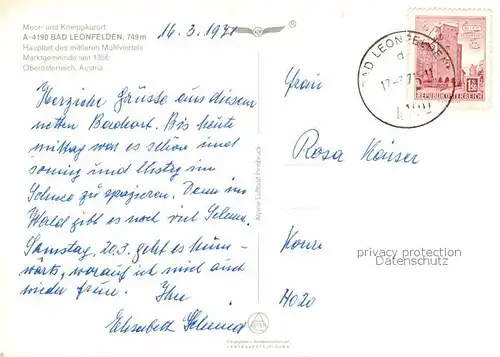 Moor- und Kneippkurort
A-4190 BAD LEONFELDEN, 749m
Hauptort des mittleren Mühlviertels
Marktgemeinde seit 1356
Oberösterreich, Austria
16.3.1971
Herzliche Grüsse aus diesem
netten Badeort. Bis heute
mittag war es schön und
sonnig und lustig im
Schnee zu spazieren. Denn im
Wald gibt es noch viel Schnee.
Samstag, 20.3. geht es heim-
wärts, worauf ich mich auch
wieder freue. Ihre
Elisabeth Schmid
Alpine Luftbild Innsbruck
BAD LEONFELDEN
4190
REPUBLIK ÖSTERREICH
Frau
Rosa
4020
privacy protection
Datenschutz